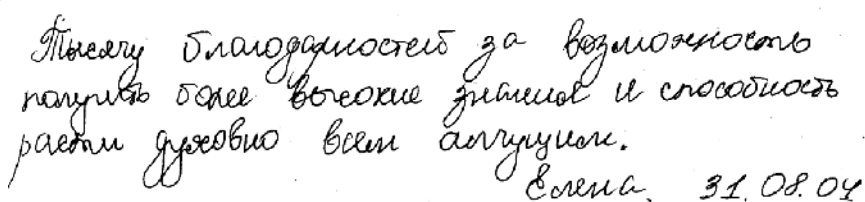 Тысячу благодарностей за возможность
получить более высокие знания и способность
расти духовно всем алчущим.
Елена. 31.08.04